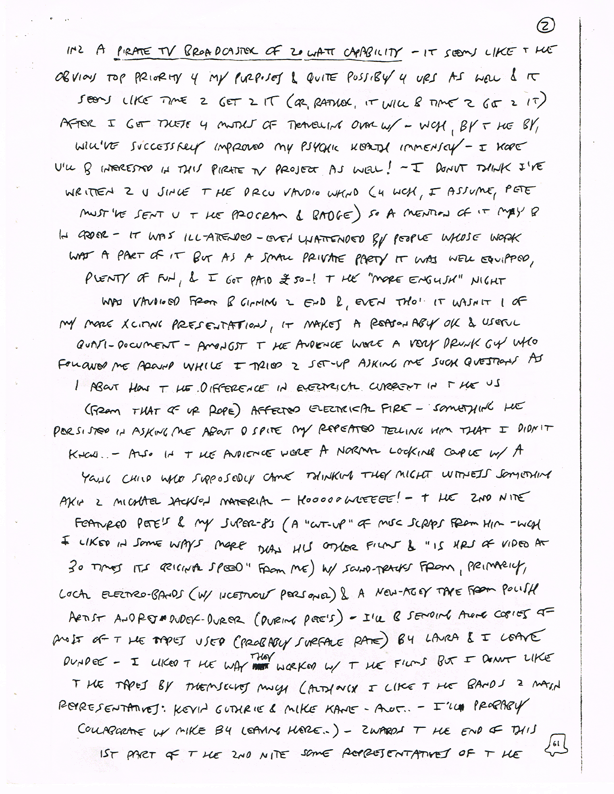 2
IN2 A PIRATE TV BROADCASTER OF 20 WATT CAPABILITY - IT SEEMS LIKE T HE
OBVIOUS TOP PRIORITY 4 MY PURPOSES & QUITE POSSIBLY 4 URS AS WELL & IT
SEEMS LIKE TIME 2 GET 2 IT (OR, RATHER, IT WILL B TIME 2 GET 2 IT)
AFTER I GET THESE 4 MNTHS OF TRAVELLING OVER W/ - WCH, BY T HE BY,
WILL'VE SUCCESSFULLY IMPROVED MY PSYCHIC HEALTH IMMENSELY - I HOPE
U'LL B INTERESTED IN THIS PIRATE TV PROJECT AS WELL! - I DONUT THINK I'VE
WRITTEN 2 U SINCE T HE DRCU VAUDIO (4 WCH, I ASSUME, PETE
MUST'VE SENT U T HE PROGRAM & BADGE) SO A MENTION OF IT MAY B
IN ORDER - IT WAS ILL-ATTENDED - EVEN UNATTENDED BY PEOPLE WHOSE WORK
WAS A PART OF IT BUT AS A SMALL PRIVATE PARTY IT WAS WELL EQUIPPED,
PLENTY OF FUN, & I GOT PAID £50-! T HE "MORE ENGLISH" NIGHT
WAS VAUDIOED FROM B GINNING 2 END &, EVEN THO' IT WASN'T 1 OF
MY MORE XCITING PRESENTATIONS, IT MAKES A REASONABLY OK & USEFUL
QUASI-DOCUMENT - AMONGST T HE AUDIENCE WERE A VERY DRUNK GUY WHO
FOLLOWED ME AROUND WHILE I TRIED 2 SET-UP ASKING ME SUCH QUESTIONS AS
1 ABOUT HOW T HE DIFFERENCE IN ELECTRICAL CURRENT IN T HE US
(FROM THAT OF UR ROPE) AFFECTED ELECTRICAL FIRE - SOMETHING HE
PERSISTED IN ASKING ME ABOUT D SPITE MY REPEATED TELLING HIM THAT I DIDN'T
KNOW.. - ALSO IN T HE AUDIENCE WERE A NORMAL LOOKING COUPLE W/ A
YOUNG CHILD WHO SUPPOSEDLY CAME THINKING THEY MIGHT WITNESS SOMETHING
AKIN 2 MICHAEL JACKSON MATERIAL - HOOOOOWLEEEE! - T HE 2ND NITE
FEATURED PETE'S & MY SUPER-8S (A "CUT-UP" OF MISC SCRAPS FROM HIM - WCH
I LIKED IN SOME WAYS MORE THAN HIS OTHER FILMS & "15 HRS OF VIDEO AT
30 TIMES ITS ORIGINAL SPEED" FROM ME) W/ SOUND-TRACKS FROM, PRIMARILY,
LOCAL ELECTRO-BANDS (W/ INCESTUOUS PERSONEL) & A NEW-AGEY TAPE FROM POLISH
ARTIST ANDRZEJ DUDEK-DURER (DURING PETE'S) - I'LL B SENDING ALONG COPIES OF
MOST OF T HE TAPES USED (PROBABLY SURFACE RATE) B4 LAURA & I LEAVE
DUNDEE - I LIKED T HE WAY THEY WORKED W/ T HE FILMS BUT I DONUT LIKE
T HE TAPES BY THEMSELVES MUCH (ALTHOUGH I LIKE T HE BANDS 2 MAIN
REPRESENTATIVES: KEVIN GUTHRIE & MIKE KANE - ALOT.. - I'LL PROBABLY
COLLABORATE W/ MIKE B4 LEAVING HERE..) - 2WARDS T HE END OF THIS
1ST PART OF T HE 2ND NITE SOME REPRESENTATIVES OF T HE
61